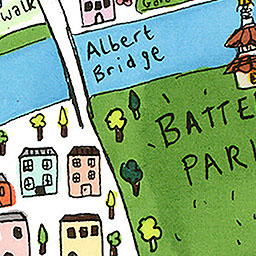 walk
Gard
Albert
Bridge
BATTE
PARK